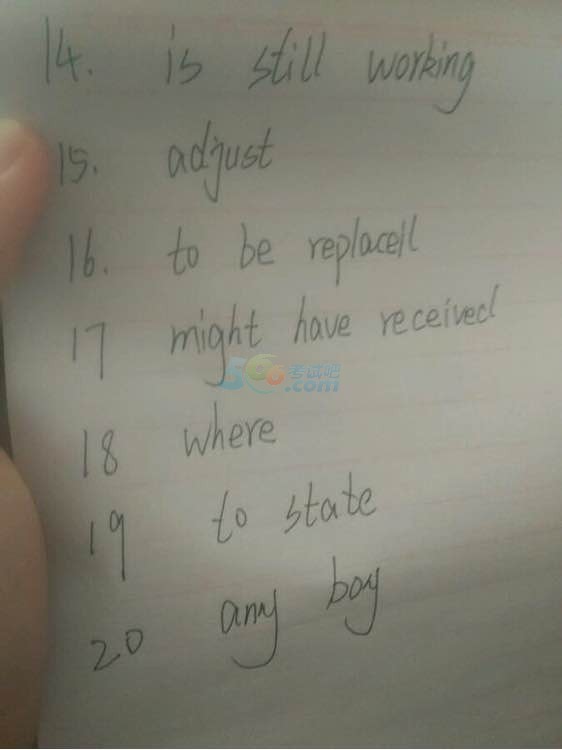 14. is still working
15. adjust
16. to be replaced
17 might have received
566考试吧
.com
18 where
19 to state
20 any boy